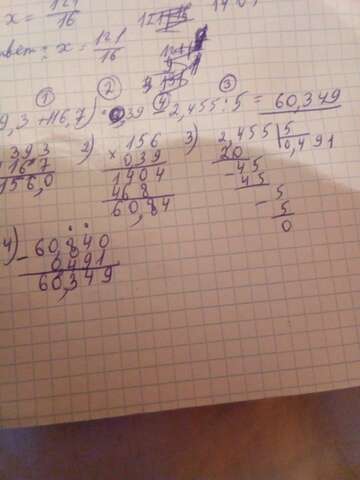 x = 121/16
ответ: x = 121/16
① ② ④ ③
9,3 + 116,7) · 0,39 - 2,455 : 5 = 60,349
39 3
116 7
156,0
2) × 156
0 39
1404
468
60,84
3) 2,455 | 5
20 0,491
- 45
45
- 5
5
0
4) - 60,840
0 491
60,349